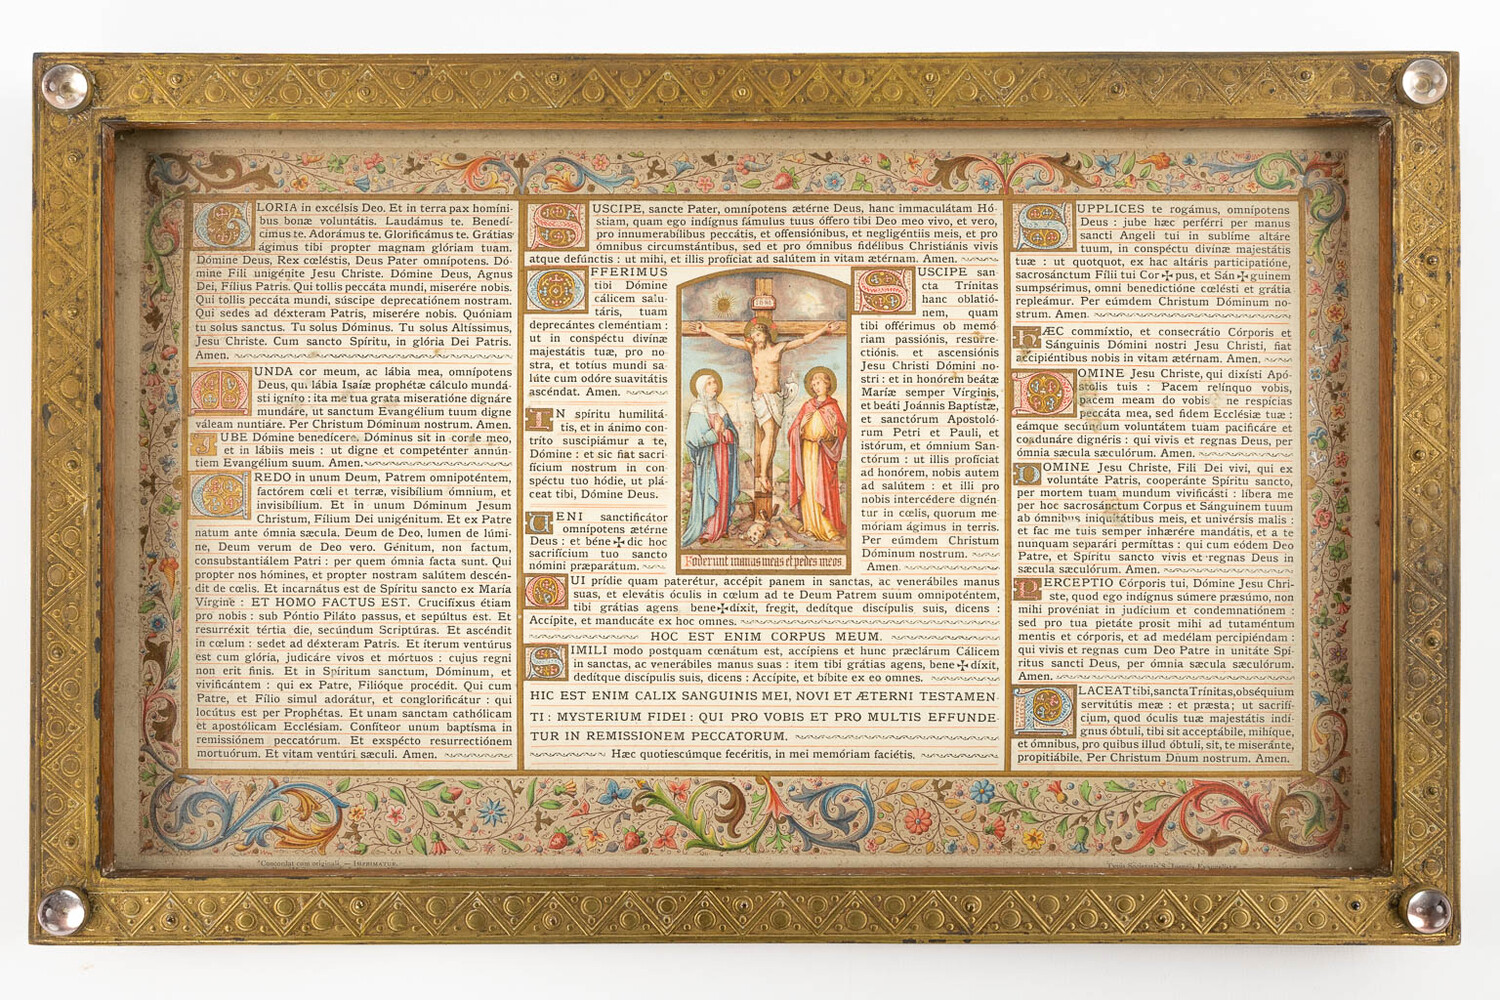 GLORIA in excélsis Deo. Et in terra pax homíni-
bus bonæ voluntátis. Laudámus te. Benedí-
cimus te. Adorámus te. Glorificámus te. Grátias
ágimus tibi propter magnam glóriam tuam.
Dómine Deus, Rex cœléstis, Deus Pater omnípotens. Dó-
mine Fili unigénite Jesu Christe. Dómine Deus, Agnus
Dei, Fílius Patris. Qui tollis peccáta mundi, miserére nobis.
Qui tollis peccáta mundi, súscipe deprecatiónem nostram.
Qui sedes ad déxteram Patris, miserére nobis. Quóniam
tu solus sanctus. Tu solus Dóminus. Tu solus Altíssimus,
Jesu Christe. Cum sancto Spíritu, in glória Dei Patris.
Amen.
MUNDA cor meum, ac lábia mea, omnípotens
Deus, qui lábia Isaíæ prophétæ cálculo mundá-
sti igníto : ita me tua grata miseratióne dignáre
mundáre, ut sanctum Evangélium tuum digne
váleam nuntiáre. Per Christum Dóminum nostrum. Amen.
JUBE Dómine benedícere. Dóminus sit in corde meo,
et in lábiis meis : ut digne et competénter annún-
tiem Evangélium suum. Amen.
CREDO in unum Deum, Patrem omnipoténtem,
factórem cœli et terræ, visibílium ómnium, et
invisibílium. Et in unum Dóminum Jesum
Christum, Fílium Dei unigénitum. Et ex Patre
natum ante ómnia sæcula. Deum de Deo, lumen de lúmi-
ne, Deum verum de Deo vero. Génitum, non factum,
consubstantiálem Patri : per quem ómnia facta sunt. Qui
propter nos hómines, et propter nostram salútem descén-
dit de cœlis. Et incarnátus est de Spíritu sancto ex María
Vírgine : ET HOMO FACTUS EST. Crucifíxus étiam
pro nobis : sub Póntio Piláto passus, et sepúltus est. Et
resurréxit tértia die, secúndum Scriptúras. Et ascéndit
in cœlum : sedet ad déxteram Patris. Et íterum ventúrus
est cum glória, judicáre vivos et mórtuos : cujus regni
non erit finis. Et in Spíritum sanctum, Dóminum, et
vivificántem : qui ex Patre, Filióque procédit. Qui cum
Patre, et Fílio simul adorátur, et conglorificátur : qui
locútus est per Prophétas. Et unam sanctam cathólicam
et apostólicam Ecclésiam. Confíteor unum baptísma in
remissiónem peccatórum. Et exspécto resurrectiónem
mortuórum. Et vitam ventúri sæculi. Amen.
SUSCIPE, sancte Pater, omnípotens ætérne Deus, hanc immaculátam Hó-
stiam, quam ego indígnus fámulus tuus óffero tibi Deo meo vivo, et vero,
pro innumerabílibus peccátis, et offensiónibus, et negligéntiis meis, et pro
ómnibus circumstántibus, sed et pro ómnibus fidélibus Christiánis vivis
atque defúnctis : ut mihi, et illis profíciat ad salútem in vitam ætérnam. Amen.
OFFERIMUS
tibi Dómine
cálicem salu-
táris, tuam
deprecántes cleméntiam :
ut in conspéctu divínæ
majestátis tuæ, pro no-
stra, et totíus mundi sa-
lúte cum odóre suavitátis
ascéndat. Amen.
IN spíritu humilitá-
tis, et in ánimo con-
tríto suscipiámur a te,
Dómine : et sic fiat sacri-
fícium nostrum in con-
spéctu tuo hódie, ut plá-
ceat tibi, Dómine Deus.
VENI sanctificátor
omnípotens ætérne
Deus : et béne✠dic hoc
sacrifícium tuo sancto
nómini præparátum.
INRI
Foderunt manus meas et pedes meos
SUSCIPE san-
cta Trínitas
hanc oblatió-
nem, quam
tibi offérimus ob memó-
riam passiónis, resurre-
ctiónis, et ascensiónis
Jesu Christi Dómini no-
stri : et in honórem beátæ
Maríæ semper Vírginis,
et beáti Joánnis Baptístæ,
et sanctórum Apostoló-
rum Petri et Pauli, et
istórum, et ómnium San-
ctórum : ut illis profíciat
ad honórem, nobis autem
ad salútem : et illi pro
nobis intercédere dignén-
tur in cœlis, quorum me-
móriam ágimus in terris.
Per eúmdem Christum
Dóminum nostrum.
Amen.
QUI prídie quam paterétur, accépit panem in sanctas, ac venerábiles manus
suas, et elevátis óculis in cœlum ad te Deum Patrem suum omnipoténtem,
tibi grátias agens bene✠díxit, fregit, dedítque discípulis suis, dicens :
Accípite, et manducáte ex hoc omnes.
HOC EST ENIM CORPUS MEUM.
SIMILI modo postquam cœnátum est, accípiens et hunc præclárum Cálicem
in sanctas, ac venerábiles manus suas : item tibi grátias agens, bene✠díxit,
dedítque discípulis suis, dicens : Accípite, et bíbite ex eo omnes.
HIC EST ENIM CALIX SANGUINIS MEI, NOVI ET ÆTERNI TESTAMEN-
TI : MYSTERIUM FIDEI : QUI PRO VOBIS ET PRO MULTIS EFFUNDE-
TUR IN REMISSIONEM PECCATORUM.
Hæc quotiescúmque fecéritis, in mei memóriam faciétis.
SUPPLICES te rogámus, omnípotens
Deus : jube hæc perférri per manus
sancti Angeli tui in sublíme altáre
tuum, in conspéctu divínæ majestátis
tuæ : ut quotquot, ex hac altáris participatióne,
sacrosánctum Fílii tui Cor✠pus, et Sán✠guinem
sumpsérimus, omni benedictióne cœlésti et grátia
repleámur. Per eúmdem Christum Dóminum no-
strum. Amen.
HÆC commíxtio, et consecrátio Córporis et
Sánguinis Dómini nostri Jesu Christi, fiat
accipiéntibus nobis in vitam ætérnam. Amen.
DOMINE Jesu Christe, qui dixísti Apó-
stolis tuis : Pacem relínquo vobis,
pacem meam do vobis ne respícias
peccáta mea, sed fidem Ecclésiæ tuæ :
eámque secúndum voluntátem tuam pacificáre et
coadunáre dignéris : qui vivis et regnas Deus, per
ómnia sæcula sæculórum. Amen.
DOMINE Jesu Christe, Fili Dei vivi, qui ex
voluntáte Patris, cooperánte Spíritu sancto,
per mortem tuam mundum vivificásti : líbera me
per hoc sacrosánctum Corpus et Sánguinem tuum
ab ómnibus iniquitátibus meis, et univérsis malis :
et fac me tuis semper inhærére mandátis, et a te
nunquam separári permíttas : qui cum eódem Deo
Patre, et Spíritu sancto vivis et regnas Deus in
sæcula sæculórum. Amen.
PERCEPTIO Córporis tui, Dómine Jesu Chri-
ste, quod ego indígnus súmere præsúmo, non
mihi provéniat in judícium et condemnatiónem :
sed pro tua pietáte prosit mihi ad tutaméntum
mentis et córporis, et ad medélam percipiéndam :
qui vivis et regnas cum Deo Patre in unitáte Spí-
ritus sancti Deus, per ómnia sæcula sæculórum.
Amen.
PLACEAT tibi, sancta Trínitas, obséquium
servitútis meæ : et præsta; ut sacrifí-
cium, quod óculis tuæ majestátis indí-
gnus óbtuli, tibi sit acceptábile, mihíque,
et ómnibus, pro quibus illud óbtuli, sit, te miseránte,
propitiábile. Per Christum Dnum nostrum. Amen.
Concordat cum originali. — IMPRIMATUR.